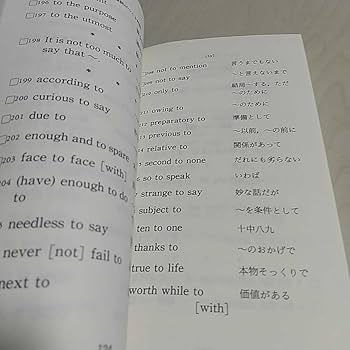 □196 to the purpose
□197 to the utmost
* * *
□198 It is not too much to
say that ～.
□199 according to
□200 curious to say
□201 due to
202 enough and to spare
203 face to face [with]
204 (have) enough to do
to
needless to say
never [not] fail to
next to
124
not to mention 言うまでもない
not to say ～と言えないまで
only to 結局～する, ただ
～のために
owing to ～のために
preparatory to 準備として
previous to ～以前, ～の前に
relative to 関係があって
second to none だれにも劣らない
so to speak いわば
strange to say 妙な話だが
subject to ～を条件として
ten to one 十中八九
thanks to ～のおかげで
true to life 本物そっくりで
worth while to 価値がある
[with]